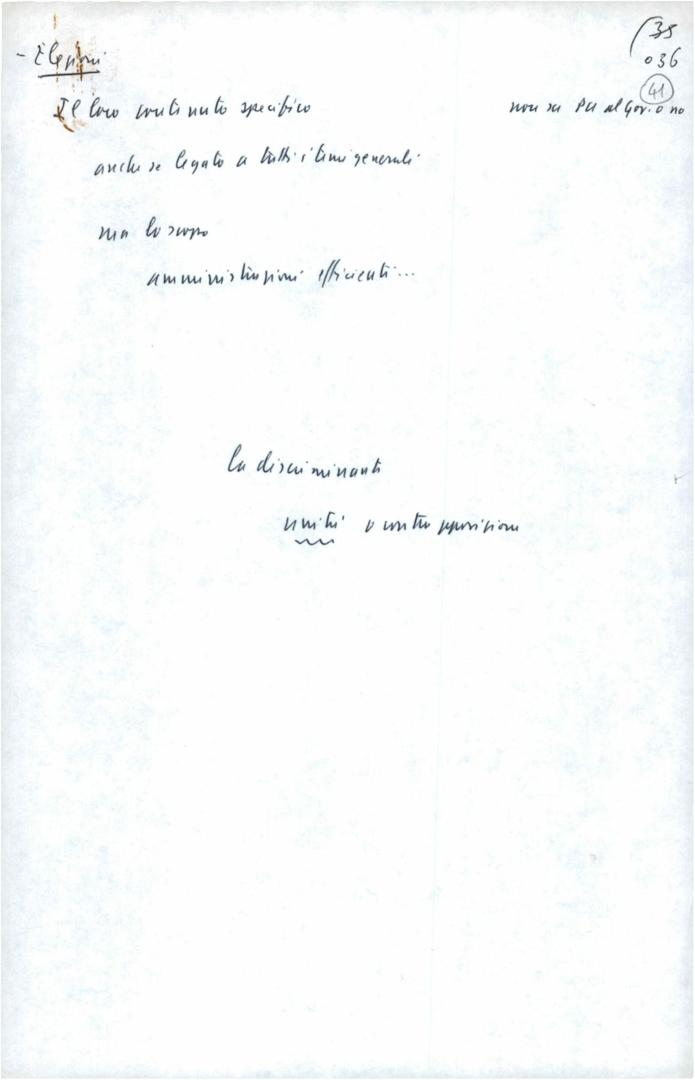 35
036
41
- Elezioni
Il loro contenuto specifico
non su PCI al Gov. o no
anche se legato a tutti i temi generali
ma lo scopo
amministrazioni efficienti...
la discriminante
unità o contrapposizione